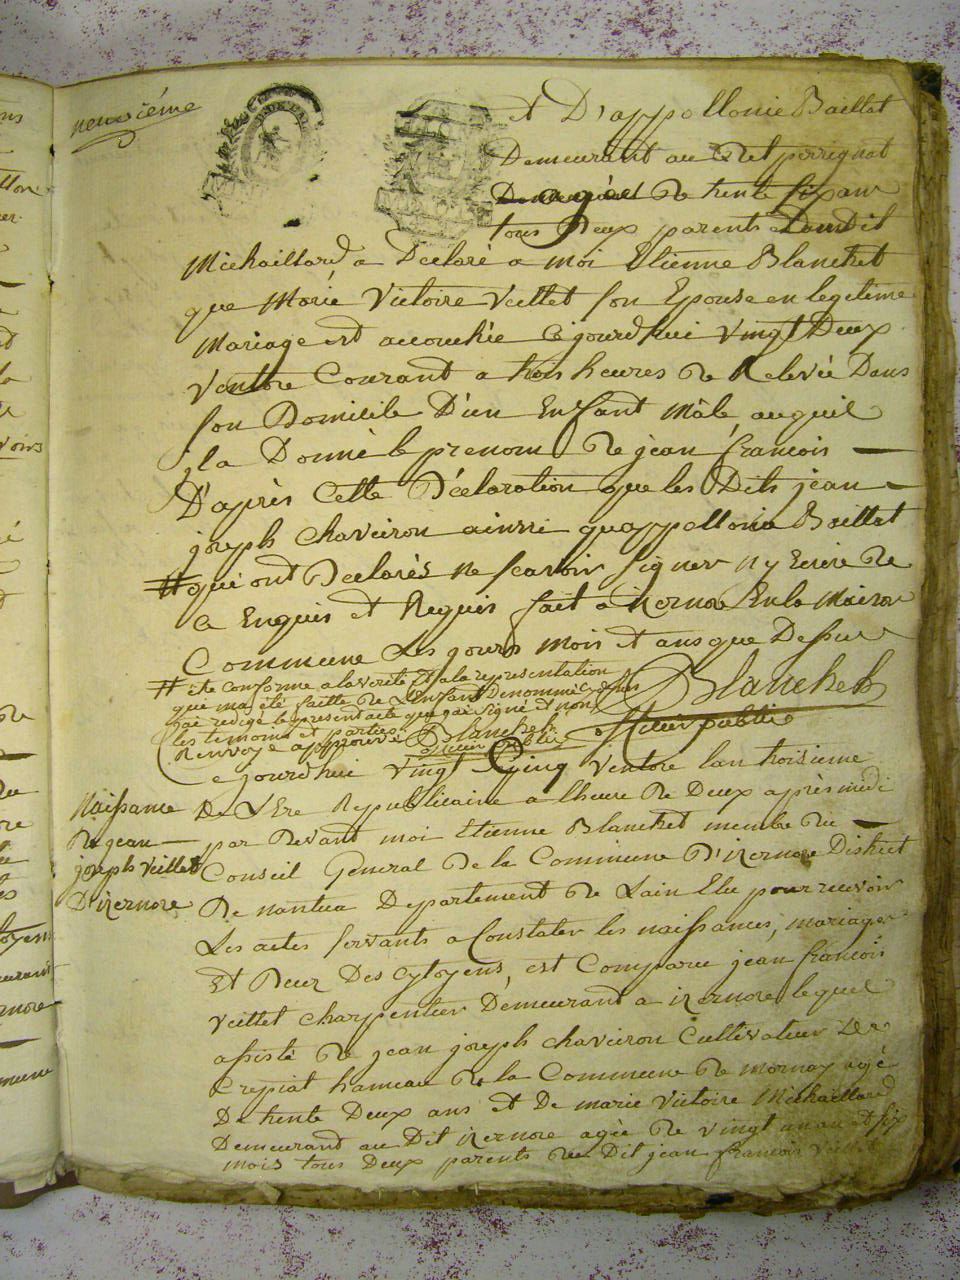 neuvième
Et D'appollonie Baillet
Demeurant au dit perrignat
agèes de trente six ans
tous Deux parents Dudit
Michaillard a Declaré a moi Etienne Blanchet
que Marie Victoire Veillet son Epouse en legitime
Mariage est accouchée ce jourd'hui vingt Deux
Ventose Courant a trois heures de Relevée Dans
son Domicile D'un Enfant Mâle auquel
jl a Donné le prenom de jean françois —
D'après Cette Déclaration que les Dits jean —
joseph chaveiron ainsi qu'appollonie Baillet
# qui ont Declarés ne scavoir signer ny Ecrire de
ce Enquis et Requis fait a izernore En la Maison
Commune les jours mois et ans que Dessus
# etre conforme a la verité Et a la representation
qui m'a été faitte de L'enfant Denommé
j'ai redigé le present acte que j'ai signé et non
les temoins et parties
Renvoye approuvé Blanchet
officier public
Blanchet
officier public
Ce jourd'hui vingt Cinq Ventose lan troisieme
Naissance
de jean —
joseph Veillet
D'izernore
De L'Ere Republicaine a lheure de Deux après midi
par Devant moi Etienne Blanchet membre du —
Conseil General de la Commune D'izernore District
De nantua Departement de Lain Elu pour recevoir
Les actes servants a Constater les naissances, mariages
Et Decez Des Cytoyens, est Comparu jean françois
Veillet charpentier Demeurand a izernore lequel
assisté de jean joseph chaveiron Cultivateur De
Crepiat hameau de la Commune de mornay agé
De trente Deux ans et De marie Victoire Michaillard
Demeurand au Dit izernore agée de vingt un an et six
mois tous Deux parents du Dit jean francois Veillet